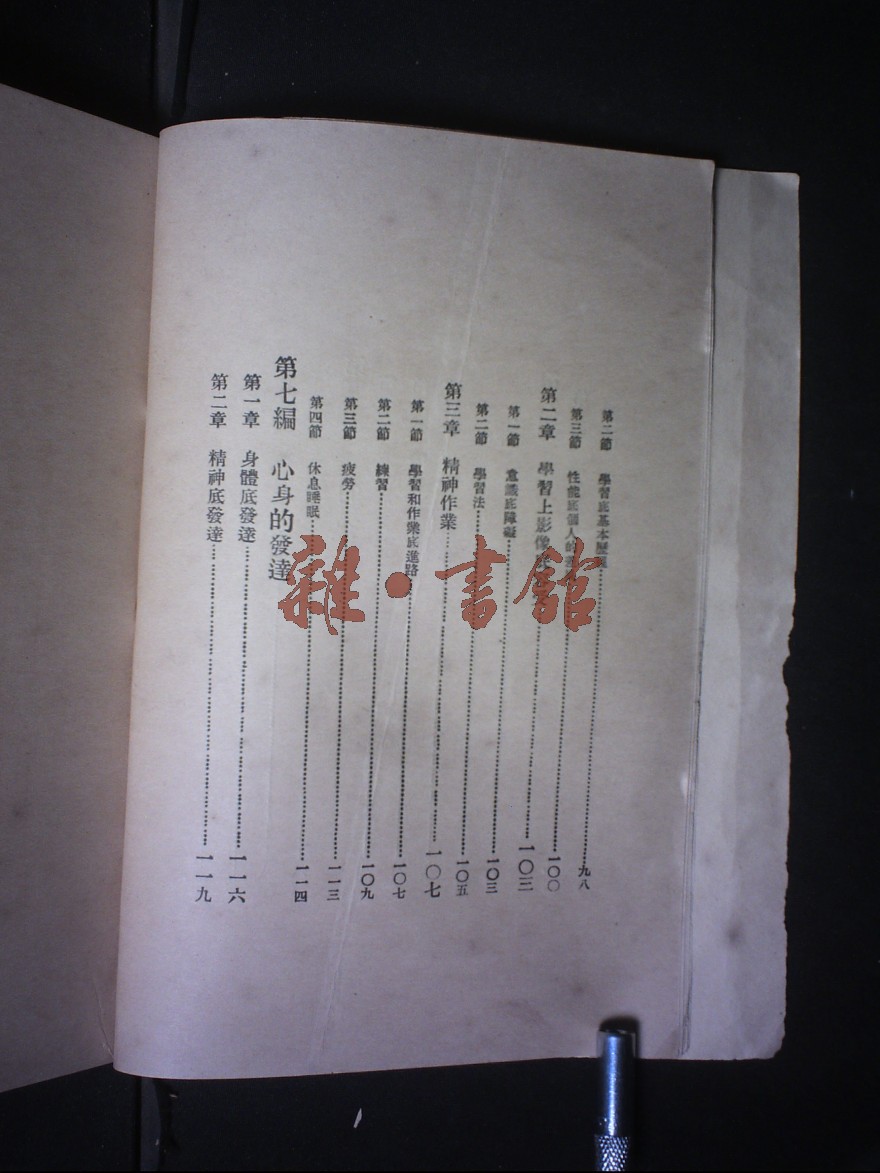 第二節 學習底基本歷程……九八
第三節 性能底個人的差……一〇〇
第二章 學習上影像……一〇三
第一節 意識底障礙……一〇三
第二節 學習法……一〇五
第三章 精神作業……一〇七
第一節 學習和作業底進路……一〇七
第二節 練習……一〇九
第三節 疲勞……一一三
第四節 休息睡眠……一一四
第七編 心身的發達
第一章 身體底發達……一一六
第二章 精神底發達……一一九
雜·書館